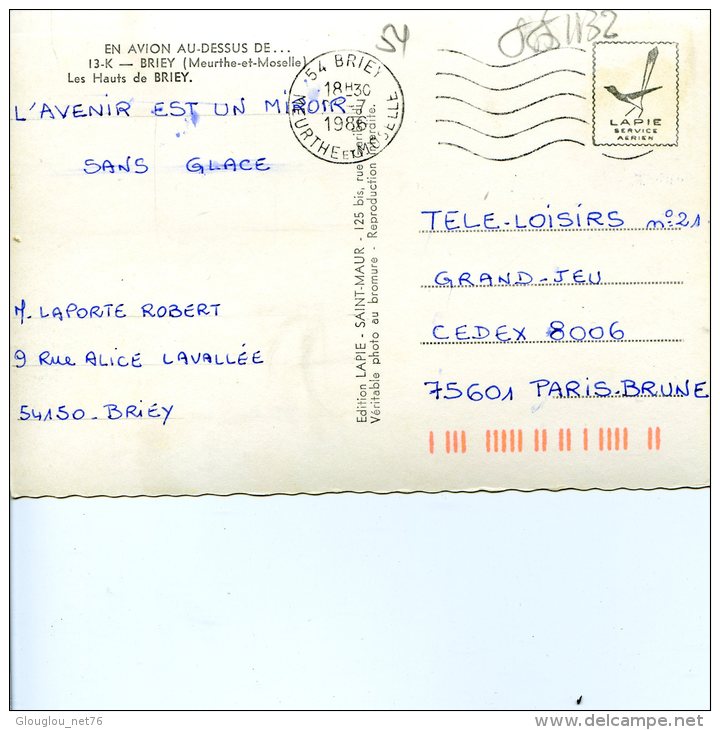 EN AVION AU-DESSUS DE...
13-K — BRIEY (Meurthe-et-Moselle)
Les Hauts de BRIEY.
L'AVENIR EST UN MIROIR
SANS GLACE
M. LAPORTE ROBERT
9 RUE ALICE LAVALLÉE
54150 - BRIEY
54 BRIEY
18H30
-7
1986
MEURTHE ET MOSELLE
54
LAPIE
SERVICE
AERIEN
Edition LAPIE - SAINT-MAUR - 125 bis, rue
Véritable photo au bromure - Reproduction interdite.
TELE-LOISIRS n°21
GRAND-JEU
CEDEX 8006
75601 PARIS-BRUNE
Glouglou_net76
delcampe.net